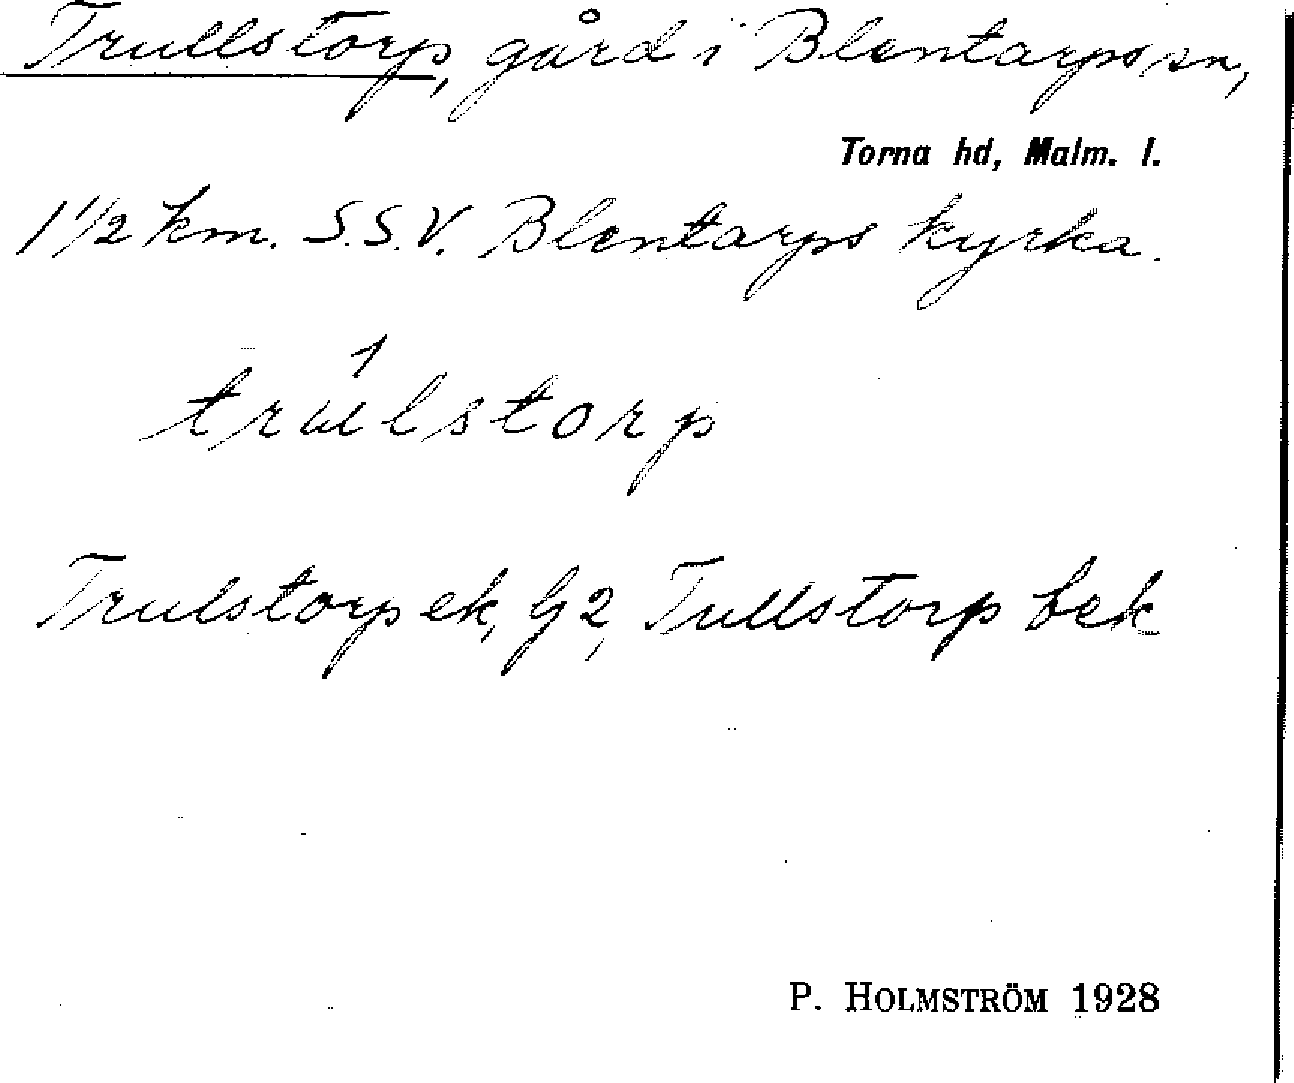 Trullstorp, gård i Blentarps sn,
Torna hd, Malm. l.
1 1/2 km. S.S.V. Blentarps kyrka.
trulstorp
Trulstorp ek, G2, Tullstorp bek
P. HOLMSTRÖM 1928